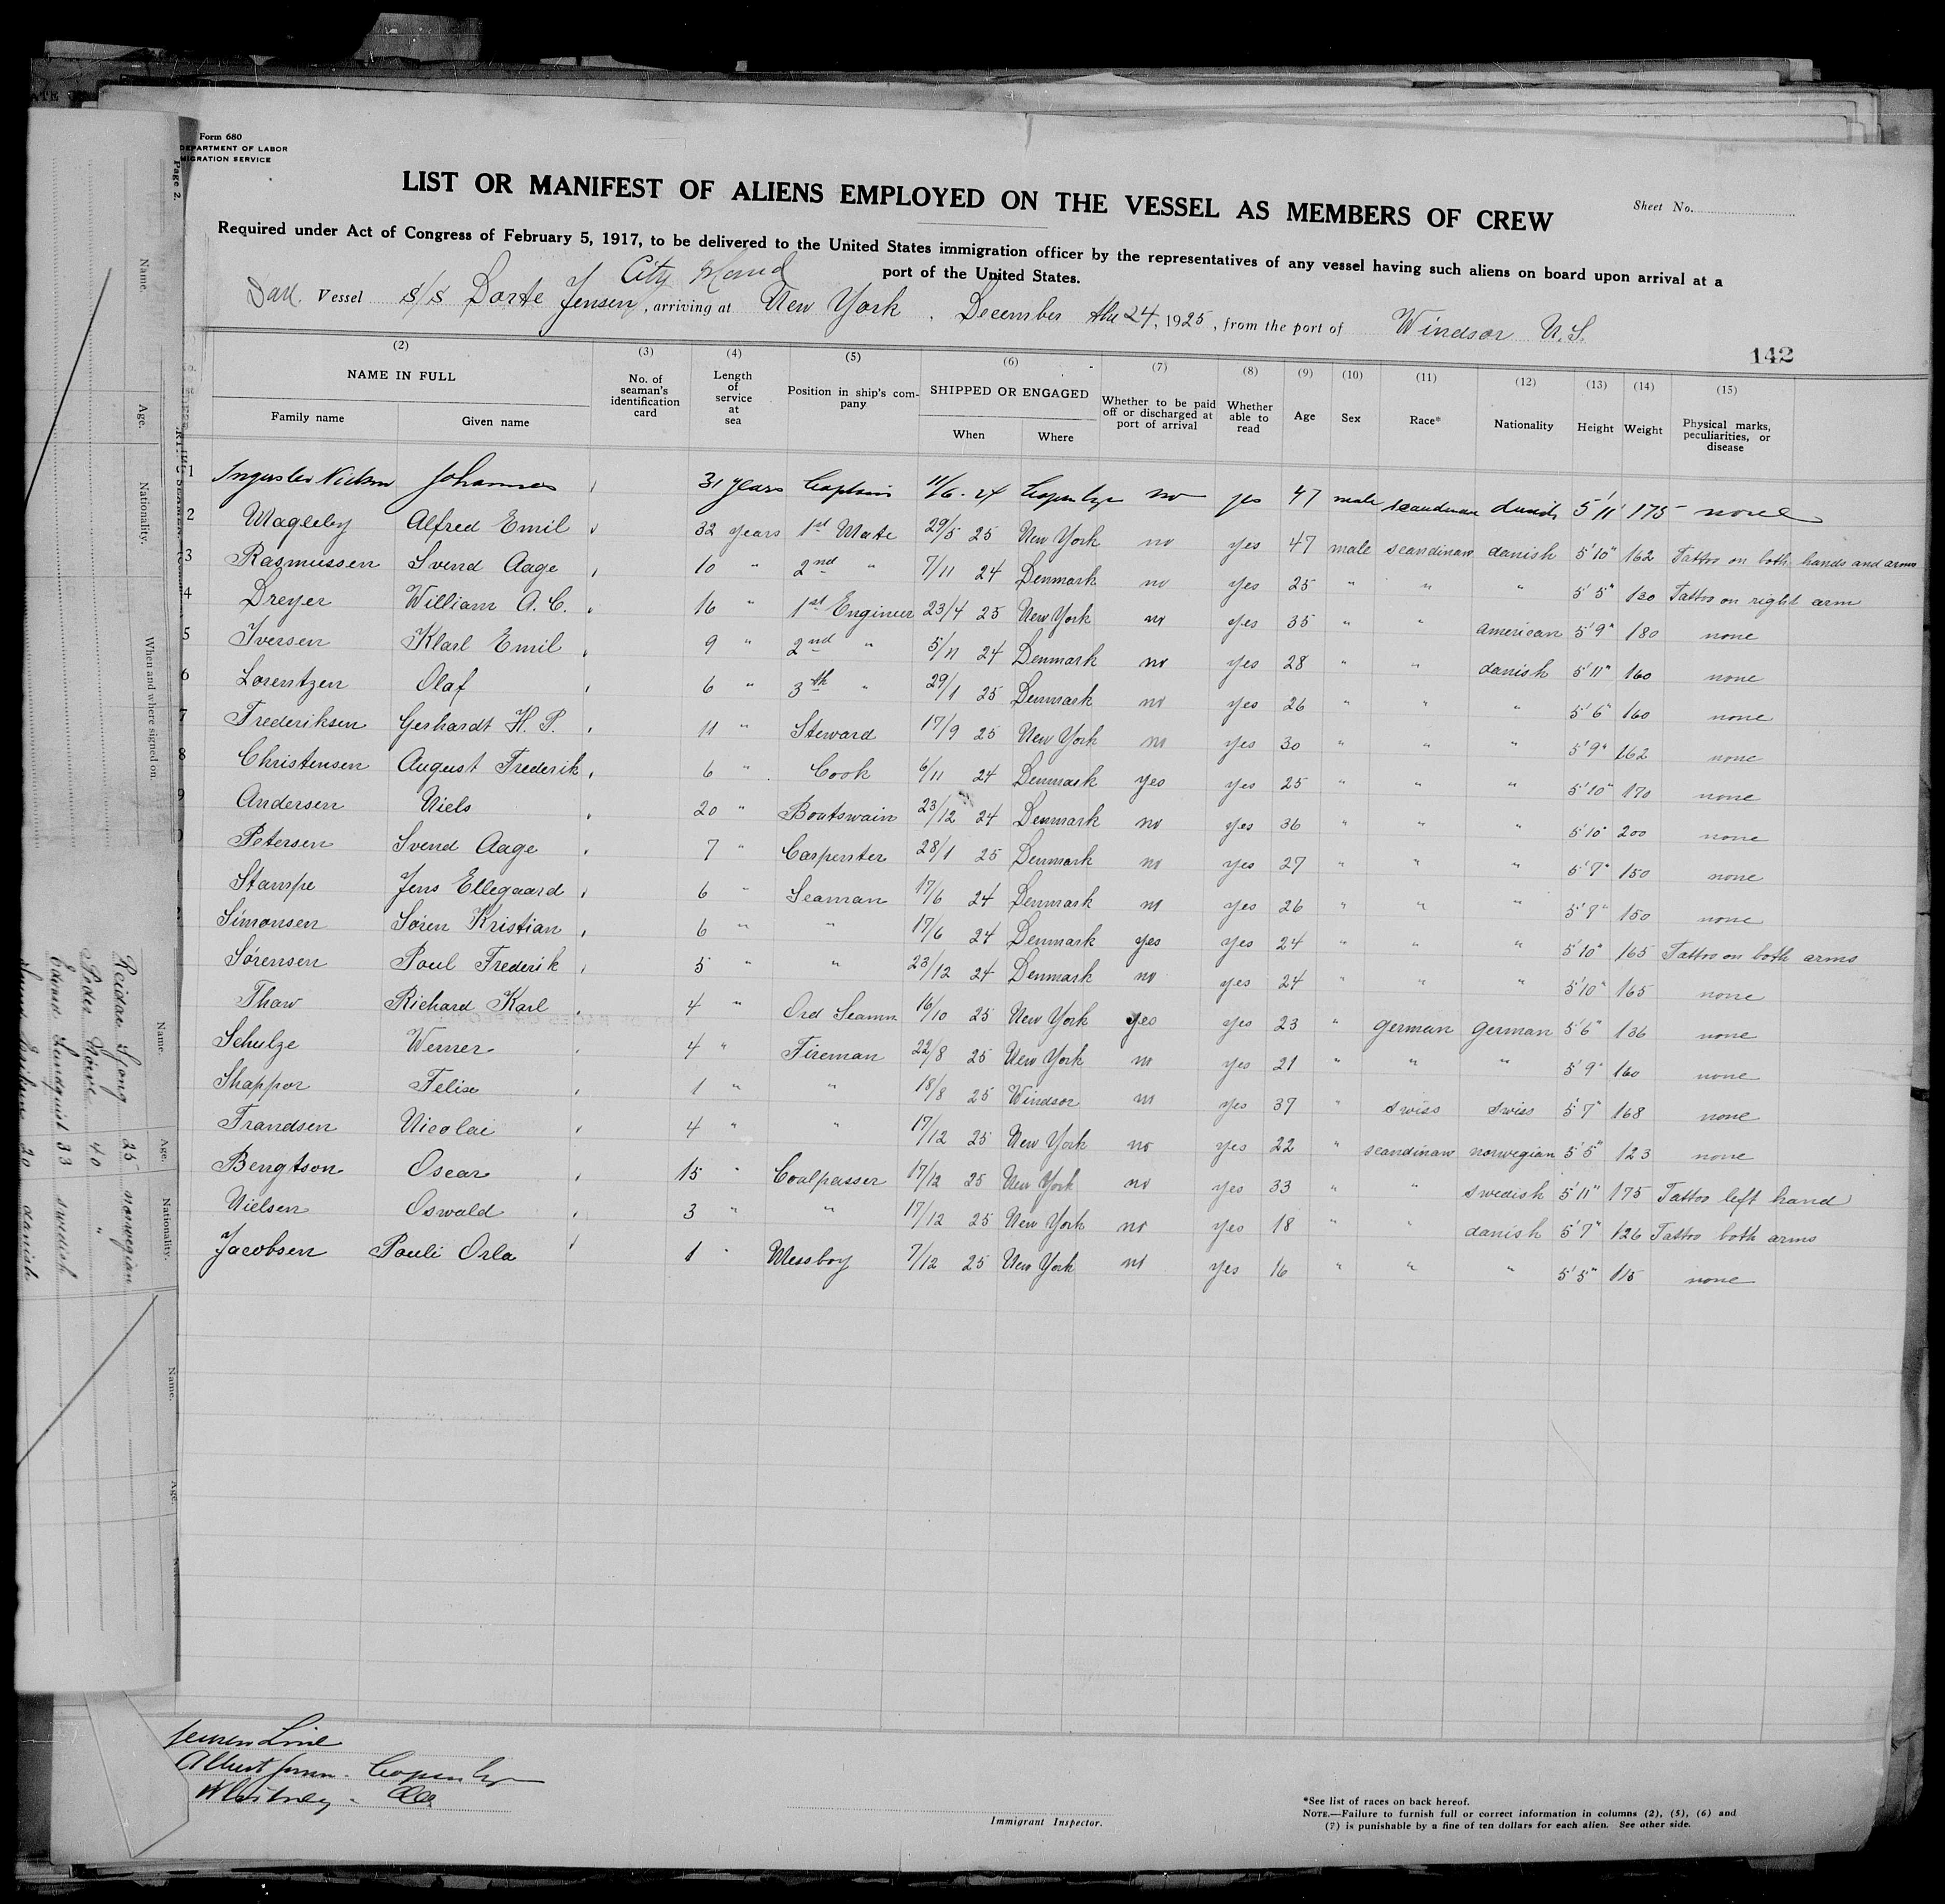 Form 680
DEPARTMENT OF LABOR
MIGRATION SERVICE
LIST OR MANIFEST OF ALIENS EMPLOYED ON THE VESSEL AS MEMBERS OF CREW
Sheet No.
Required under Act of Congress of February 5, 1917, to be delivered to the United States immigration officer by the representatives of any vessel having such aliens on board upon arrival at a
port of the United States.
City Island
Dan. Vessel S/S Dorte Jensen, arriving at New York, December the 24, 1925, from the port of Windsor N.S.
142
(2) (3) (4) (5) (6) (7) (8) (9) (10) (11) (12) (13) (14) (15)
NAME IN FULL No. of seaman's identification card Length of service at sea Position in ship's company SHIPPED OR ENGAGED Whether to be paid off or discharged at port of arrival Whether able to read Age Sex Race* Nationality Height Weight Physical marks, peculiarities, or disease
Family name Given name When Where
1 Johannes 31 years Captain 11/6 - 24 no yes 47 male danish 5'11 175 none
2 Magleby Alfred Emil 32 years 1st Mate 29/5 25 New York no yes 47 male scandinav danish 5'10" 162 Tattoo on both hands and arms
3 Rasmussen Svend Aage 10 " 2nd " 7/11 24 Denmark no yes 25 " " " 5'5" 130 Tattoo on right arm
4 Dreyer William A. C. 16 " 1st Engineer 23/4 25 New York no yes 35 " " american 5'9" 180 none
5 Iversen Klarl Emil 9 " 2nd " 5/11 24 Denmark no yes 28 " " danish 5'11" 160 none
6 Lorentzen Olaf 6 " 3th " 29/1 25 Denmark no yes 26 " " " 5'6" 160 none
7 Frederiksen Gerhardt H. P. 11 " Steward 17/9 25 New York no yes 30 " " " 5'9" 162 none
8 Christensen August Frederik 6 " Cook 6/11 24 Denmark yes yes 25 " " " 5'10" 170 none
9 Andersen Niels 20 " Boatswain 23/12 24 Denmark no yes 36 " " " 5'10" 200 none
Petersen Svend Aage 7 " Carpenter 28/1 25 Denmark no yes 27 " " " 5'7" 150 none
Stampe Jens Ellegaard 6 " Seaman 17/6 24 Denmark no yes 26 " " " 5'7" 150 none
Simonsen Søren Kristian 6 " " 17/6 24 Denmark yes yes 24 " " " 5'10" 165 Tattoo on both arms
Sørensen Poul Frederik 5 " " 23/12 24 Denmark no yes 24 " " " 5'10" 165 none
Thaw Richard Karl 4 " Ord Seamn 16/10 25 New York yes yes 23 " german german 5'6" 136 none
Schulze Werner 4 " Fireman 22/8 25 New York no yes 21 " " " 5'9" 160 none
Shappor Felise 1 " " 18/8 25 Windsor no yes 37 " swiss swiss 5'7" 168 none
Frandsen Nicolai 4 " " 17/12 25 New York no yes 22 " scandinav norwegian 5'5" 123 none
Bengtson Oscar 15 " Coalpasser 17/12 25 New York no yes 33 " " swedish 5'11" 175 Tattoo left hand
Nielsen Oswald 3 " " 17/12 25 New York no yes 18 " " danish 5'7" 126 Tattoo both arms
Jacobsen Pauli Orla 1 " Messboy 7/12 25 New York no yes 16 " " " 5'5" 115 none
Jensen Line
Albert Jensen -
Whitney -
Immigrant Inspector.
*See list of races on back hereof.
NOTE.—Failure to furnish full or correct information in columns (2), (5), (6) and
(7) is punishable by a fine of ten dollars for each alien. See other side.
Page 2
Name. Age. Nationality. When and where signed on.
Name. Age. Nationality.
Reidar 25 norwegian
Peder 40 "
Edvard Lundquist 33 swedish
20 danish
Name. Age.